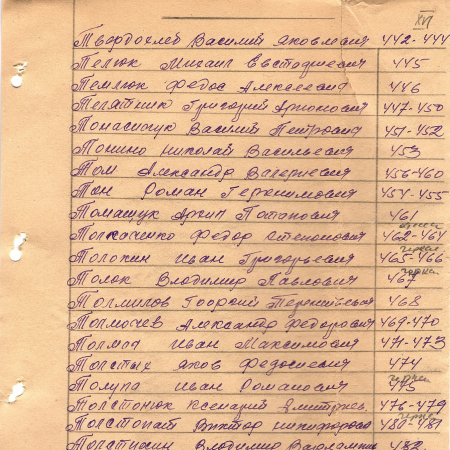 XVI
Твердохлеб Василий Яковлевич 442-444
Телюк Михаил Евстафиевич 445
Темлюк Федос Алексеевич 446
Телятник Григорий Арионович 447-450
Томасищук Василий Петрович 451-452
Томино Николай Васильевич 453
Том Александр 456-460
Тон Роман Герасимович 454-455
Томащук Архип Потапович 461
Толкаченко Федор Степанович 462-464
Толокин Иван Григорьевич 465-466
Толок Владимир Павлович 467
Толмилов Георгий Терентьевич 468
Толмочев Александр Федорович 469-470
Толмач Иван Максимович 471-473
Толстых Яков Федосиевич 474
Толупа Иван Романович 475
Толстонюк Ксенарий Дмитриев 476-479
Толстопят Виктор Никифорович 480-481
Толстихин Владимир 482